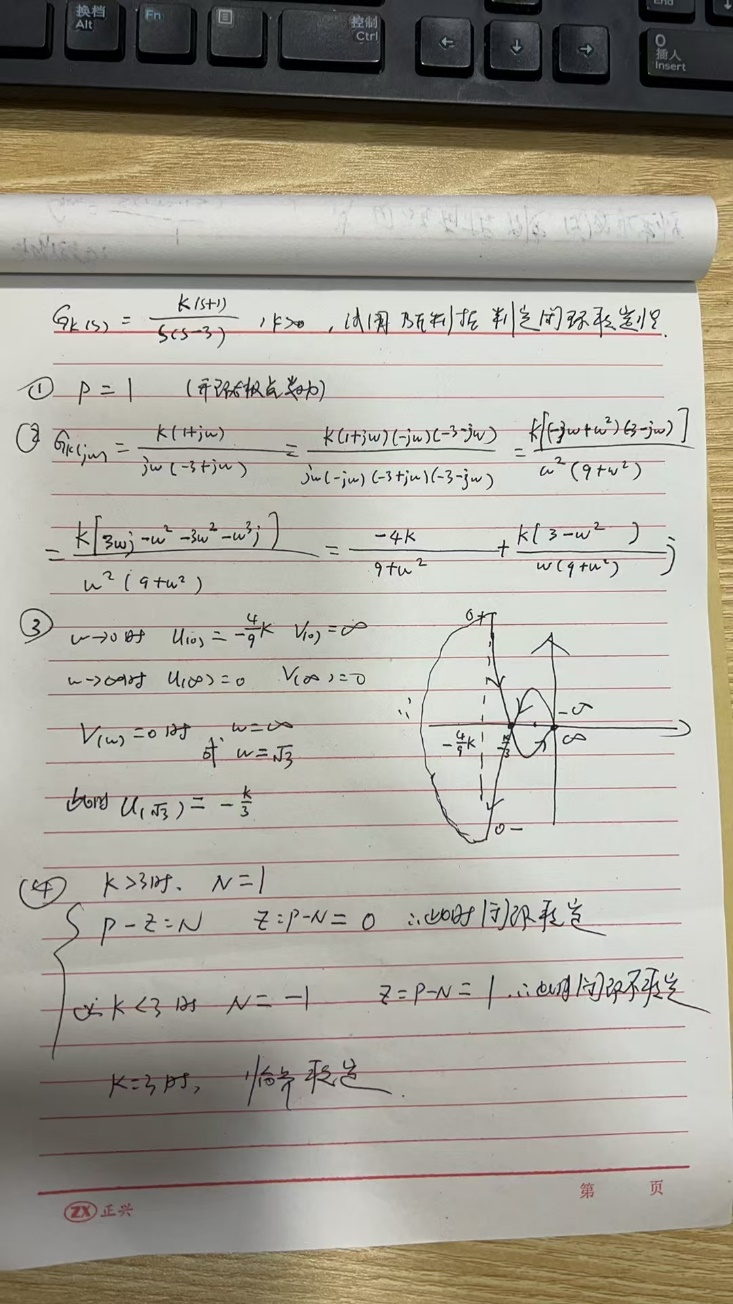 换档
Alt
Fn
控制
Ctrl
End
0
插人
Insert
← ↓ →
G_K(s) = K(s+1) / s(s-3) , K>0 , 试用 判据 判定闭环稳定性.
① P = 1 (开环极点数为)
② G_K(jw) = K(1+jw) / jw(-3+jw) = K(1+jw)(-jw)(-3-jw) / jw(-jw)(-3+jw)(-3-jw) = K[(-jw+w²)(-3-jw)] / w²(9+w²)
= K[3wj -w² -3w² -w³j] / w²(9+w²) = -4K / 9+w² + K(3-w²) / w(9+w²) j
③ w→0时 U(0) = -4/9K V(0) = ∞
w→∞时 U(∞) = 0 V(∞) = 0
V(w) = 0 时 w = ∞
或 w = √3
此时 U(√3) = -K/3
∴
0+
-∞
-4/9K
K/3
∞
0-
④ K>3时. N = 1
P - Z = N Z = P-N = 0 ∴此时闭环稳定
0< K<3 时 N = -1 Z = P-N = 1 ∴此时闭环不稳定
K=3时, 临界稳定.
第 页
ZX 正兴